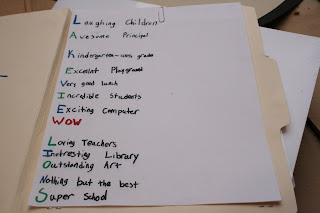 Laughing Children
Awesome Principal
Kindergarten-six grade
Excelent Playground
Very good lunch
Incredible Students
Exciting Computer
WOW
Loving Teachers
Intresting Library
Outstanding Art
Nothing but the best
Super School